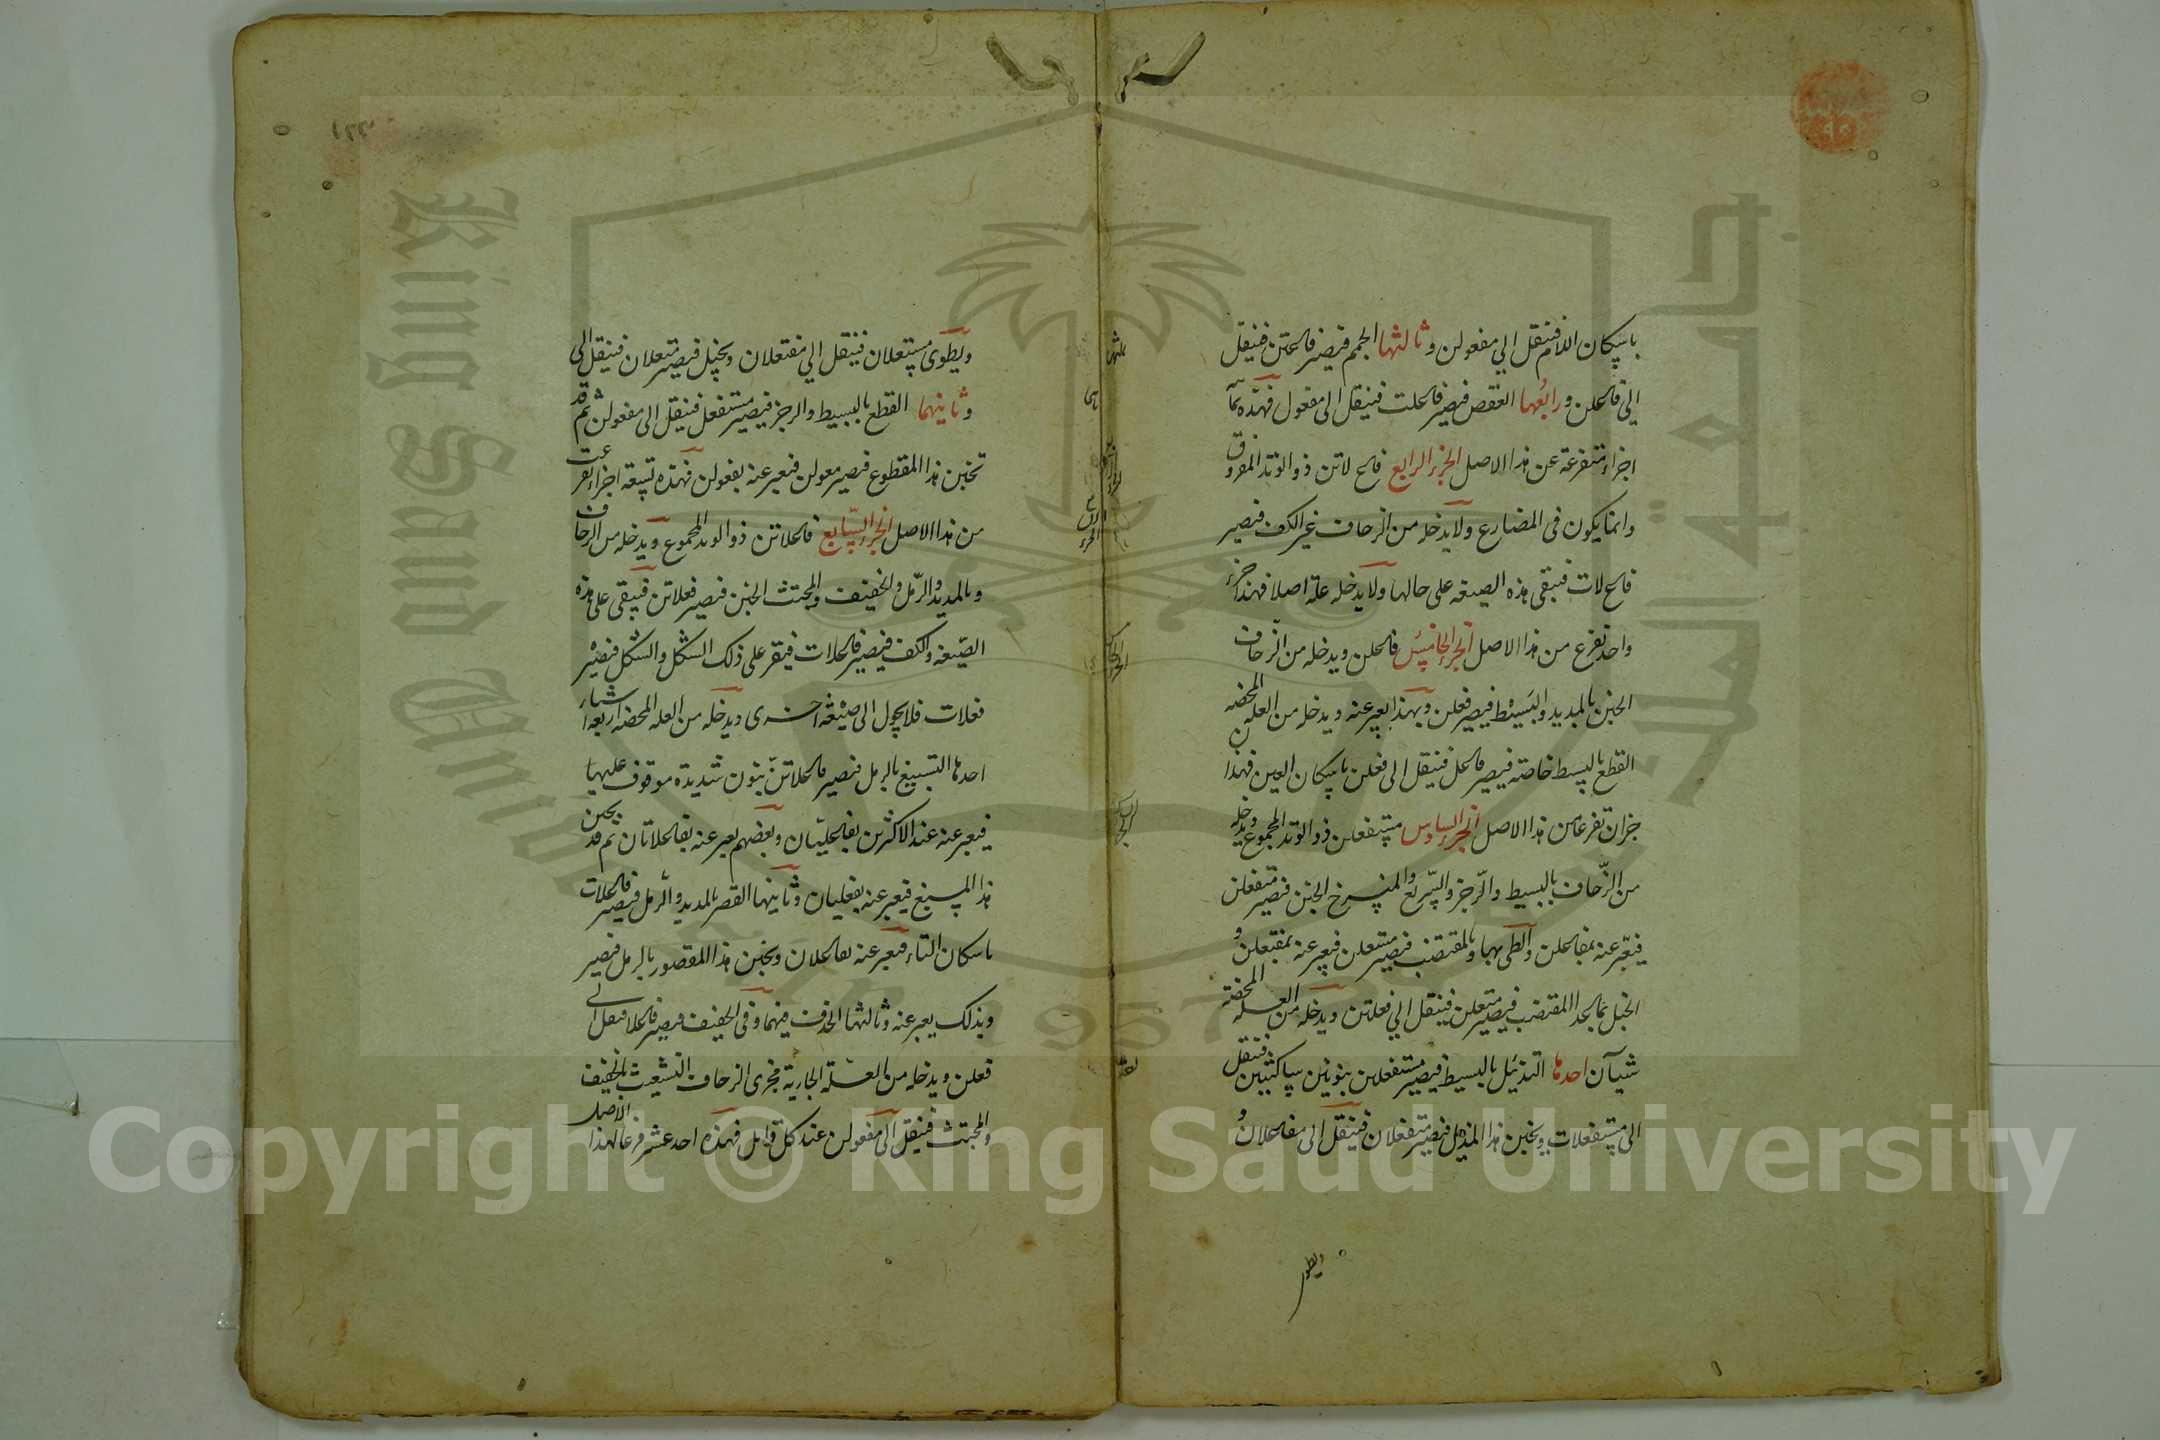 باسكان اللام فنقل الي مفعولن وثالثها الجمم فيصير فاعتن فينقل
الي فاعلن ورابعها العقص فيصير فاعلت فينقل الى مفعول فهذه ثمانية
اجزاء متفرعة عن هذا الاصل الجزء الرابع فاع لاتن ذو الوتد المفروق
وانما يكون فى المضارع ولا يدخله من الزحاف غير الكف فيصير
فاع لات فيبقى هذه الصيغه على حالها ولا يدخله علة اصلا فهذا جزء
واحد تفرع من هذا الاصل الجزء الخامس فاعلن ويدخله من الزحاف
الخبن بالمديد والبسيط فيصير فعلن وبهذا يعبر عنه ويدخله من العلة المحضه
القطع بالبسيط خاصة فيصير فاعل فينقل الى فعلن باسكان العين فهذان
جزان تفرعا من هذا الاصل الجزء السادس مستفعلن ذو الوتد المجموع ويدخله
من الزحاف بالبسيط والرجز والسريع والمنسرح الخبن فيصير متفعلن
فيعبر عنه بمفاعلن والطى بها وبالمقتضب فيصير مستعلن فيعبر عنه بمفتعلن و
الخبل بما عدا المقتضب فيصير متعلن فينقل الي فعلتن ويدخله من العلة المحضة
شيآن احدها التذئيل بالبسيط فيصير مستفعلنن بنونين ساكنتين فينقل
الى مستفعلات ويخبن هذا المذيل فيصير متفعلان فينقل الى مفاعلان و
ويطوى
ويطوى مستعلان فينقل الي مفتعلان ويخبل فيصير متعلان فينقل الى
وثانيهما القطع بالبسيط والرجز فيصير مستفعل فينقل الى مفعولن ثم قد
تخبن هذا المقطوع فيصير معولن فيعبر عنه بفعولن فهذه تسعة اجزاء تفرعت
من هذا الاصل الجزء السابع فاعلاتن ذو الوتد المجموع ويدخله من الزحاف
وبالمديد والرمل والخفيف والمجتث الخبن فيصير فعلاتن فيبقى على هذه
الصيغه والكف فيصير فاعلات فيقر على ذلك الشكل والشكل فيصير
فعلات فلا يحول الى صيغة اخرى ويدخله من العله المحضه اربعة اشياء
احدها التسبيغ بالرمل فيصير فاعلاتنّ بنون شديدة موقوف عليها
فيعبر عنه عند الاكثرين بفاعليّان وبعضهم يعبر عنه بفاعلاتان ثم قد يخبن
هذا المسبغ فيعبر عنه بفعليان وثانيها القصر بالمديد والرمل فيصير فاعلات
باسكان التاء فيعبر عنه بفاعلان ويخبن هذا المقصور بالرمل فيصير
وبذلك يعبر عنه وثالثها الحذف فيهما وفى الخفيف فيصير فاعلا فينقل الى
فعلن ويدخله من العلة الجارية مجرى الزحاف التشعيث بالخفيف
والمجتث فينقل الى مفعولن عند كل قايل فهذه احد عشر فرعا لهذا الاصل